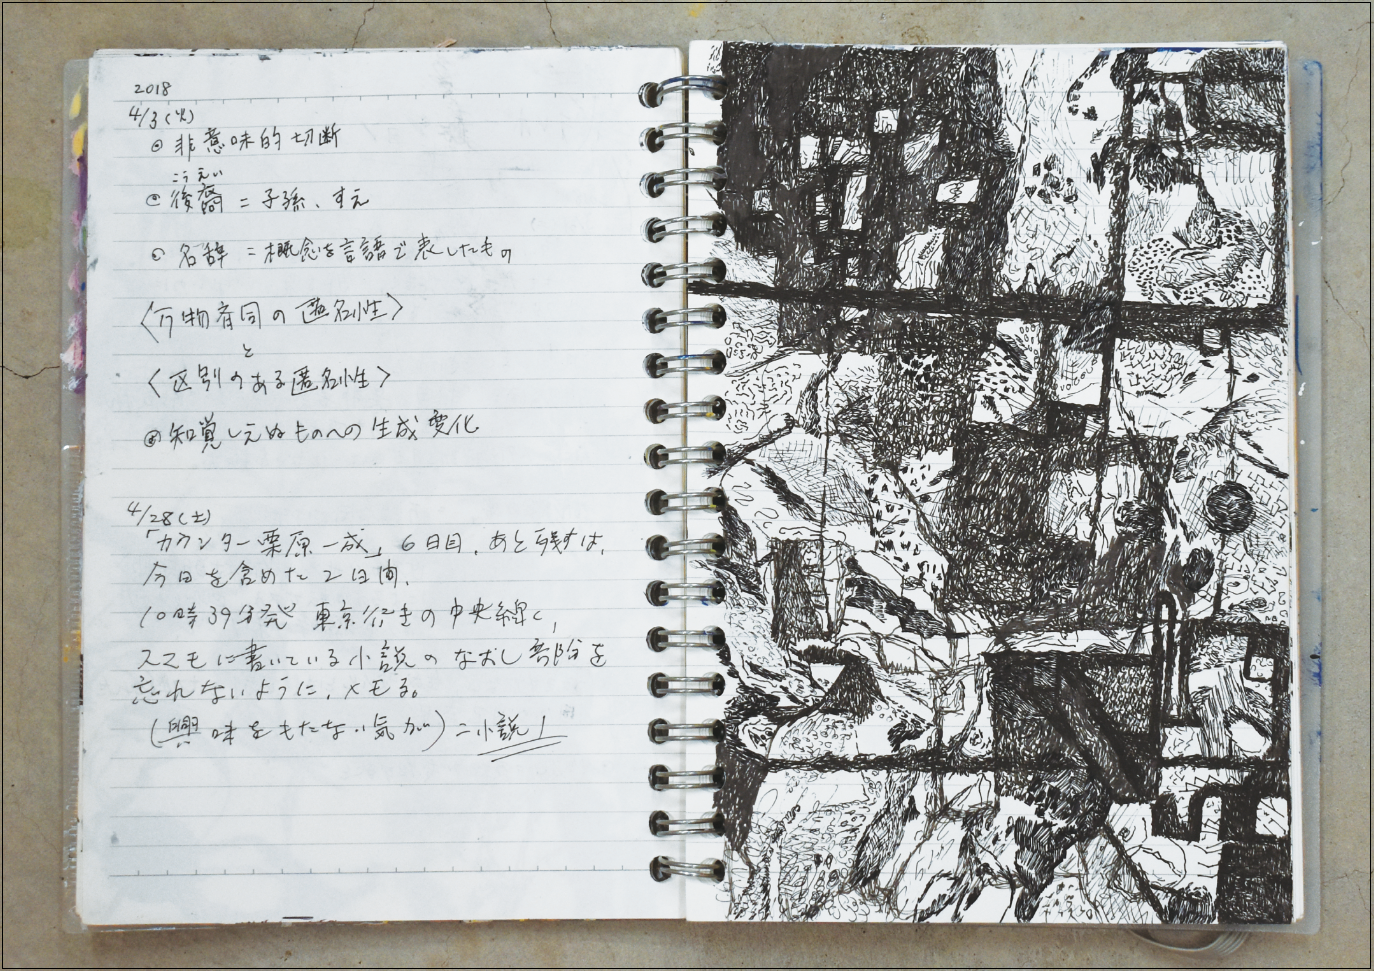 2018
4/3(火)
◎ 非意味的切断
こうえい
◎ 後裔 = 子孫、すえ
◎ 名辞 = 概念を言語で表したもの
〈万物斉同の匿名性〉
と
〈区別のある匿名性〉
◎ 知覚しえぬものへの生成変化
4/28(土)
「カウンター栗原一成」6日目、あと残すは、
今日を含めた2日間、
10時39分発 東京行きの中央線で、
スマホに書いている小説のなおし部分を
忘れないように、メモる。
(興味をもたない気が) = 小説!